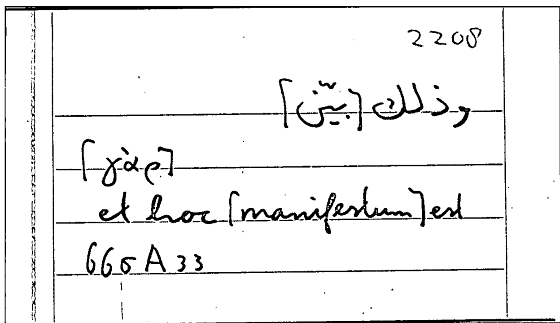 2208
وذلك [بيّن]
[γὰρ]
et hoc [manifestum] est
666 A 33